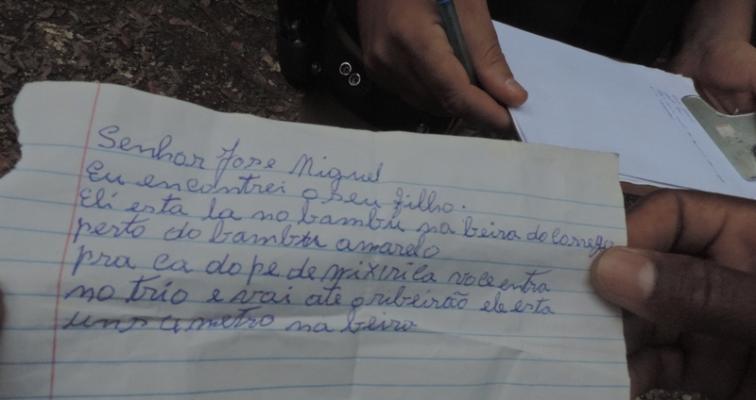 Senhor Jose Miguel
Eu encontrei o seu filho.
Eli esta la no bambu na beira do corrego
perto do bambu amarelo
pra ca do pe de mixirica voce entra
no trio e vai ate o ribeirão ele esta
uns metro na beira